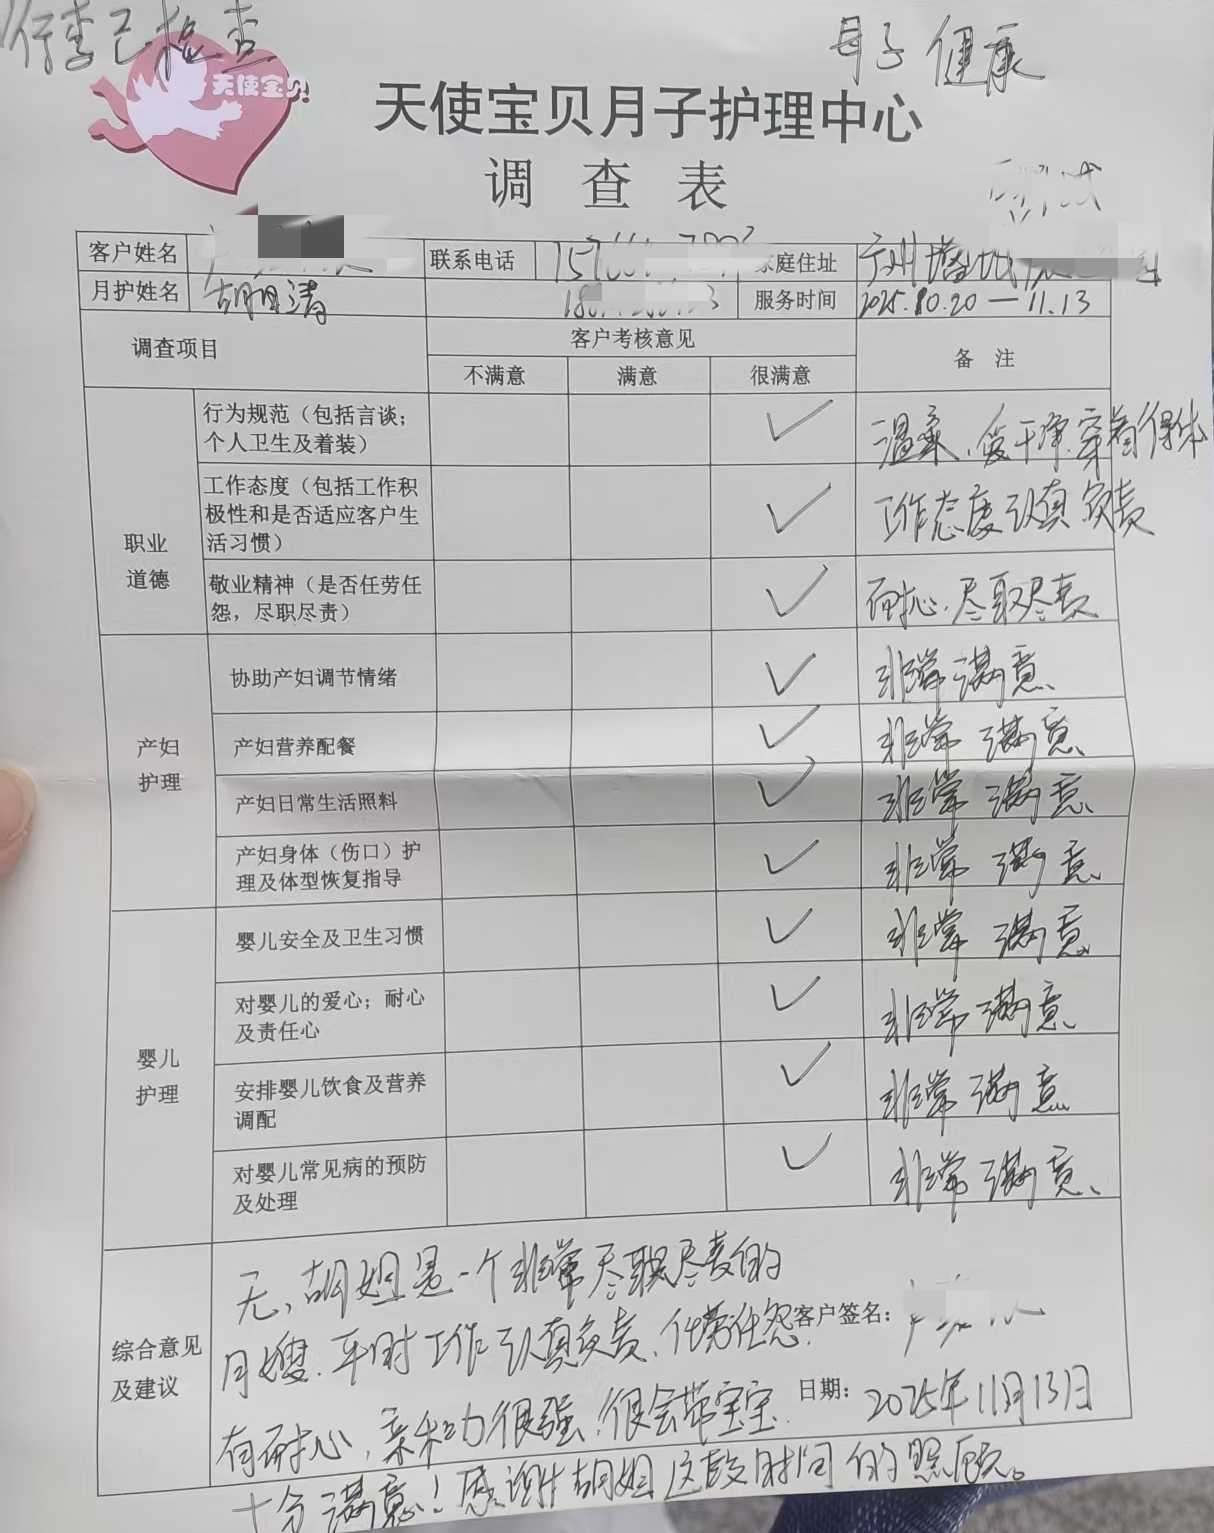 行李已检查
母子 健康
天使宝贝
天使宝贝月子护理中心
调 查 表
客户姓名 联系电话 家庭住址 广州
月护姓名 胡月清 服务时间 2025.10.20 — 11.13
调查项目 客户考核意见 备 注
不满意 满意 很满意
职业道德
行为规范（包括言谈；
个人卫生及着装） ✓ 温柔、爱干净.穿着得体
工作态度（包括工作积
极性和是否适应客户生
活习惯） ✓ 工作态度认真负责
敬业精神（是否任劳任
怨，尽职尽责） ✓ 耐心.尽职尽责
产妇护理
协助产妇调节情绪 ✓ 非常满意、
产妇营养配餐 ✓ 非常满意、
产妇日常生活照料 ✓ 非常满意、
产妇身体（伤口）护
理及体型恢复指导 ✓ 非常满意、
婴儿护理
婴儿安全及卫生习惯 ✓ 非常满意、
对婴儿的爱心；耐心
及责任心 ✓ 非常满意、
安排婴儿饮食及营养
调配 ✓ 非常满意
对婴儿常见病的预防
及处理 ✓ 非常满意、
综合意见
及建议
无、胡姐是一个非常尽职尽责的
月嫂.平时工作认真负责、任劳任怨.
客户签名：
有耐心，亲和力很强.很会带宝宝.
日期：2025年11月13日
十分满意！感谢胡姐这段时间的照顾。